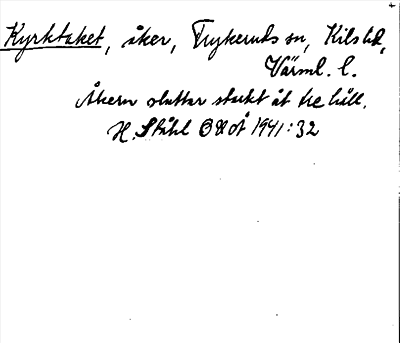 Kyrktaket, åker, Frykeruds sn, Kils hd,
Värml. l.
Åkern sluttar starkt åt tre håll.
H. Ståhl OÅoÅ 1941:32